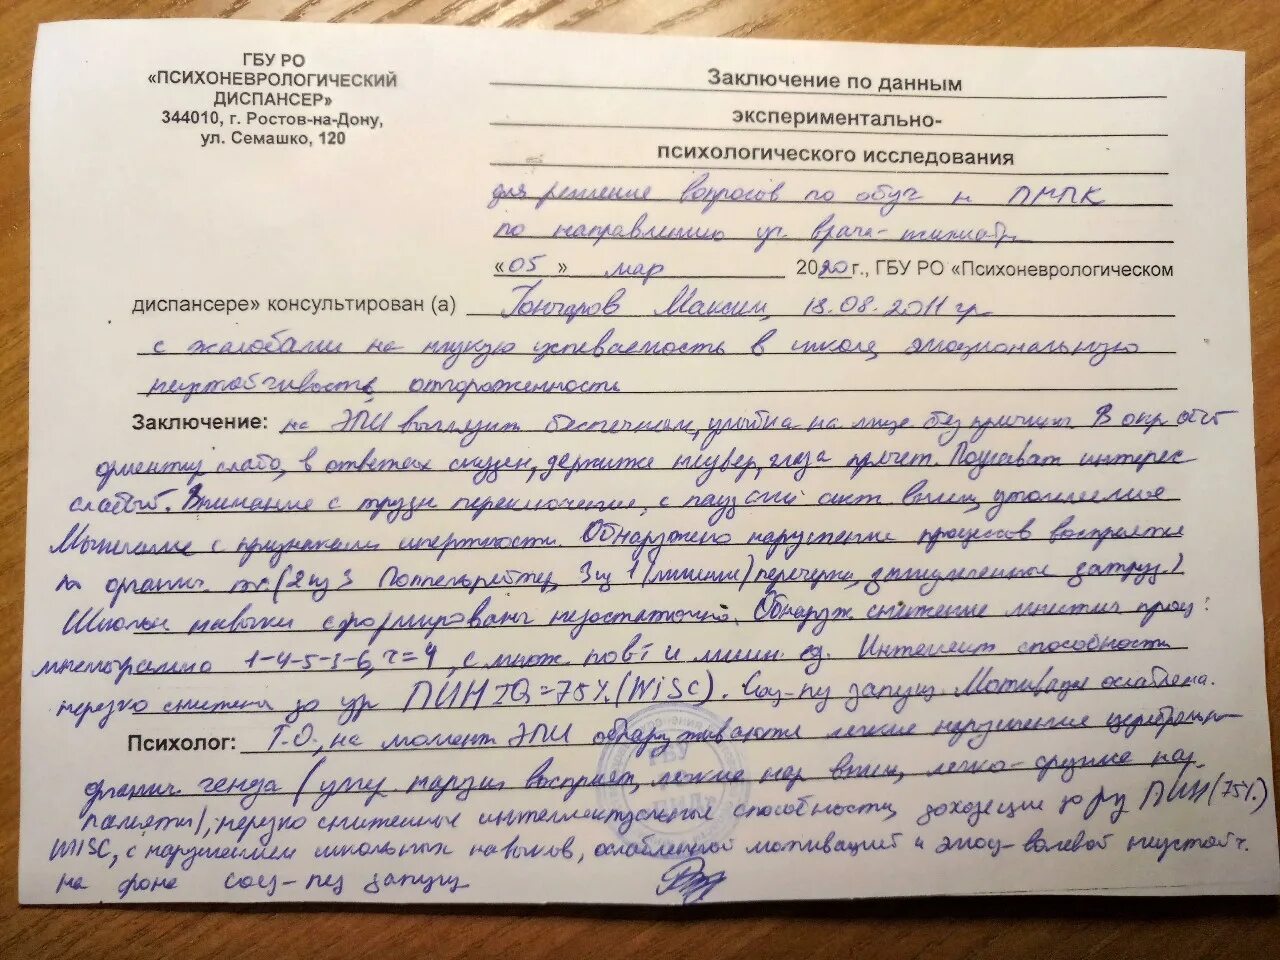 ГБУ РО
«ПСИХОНЕВРОЛОГИЧЕСКИЙ
ДИСПАНСЕР»
344010, г. Ростов-на-Дону,
ул. Семашко, 120
Заключение по данным
экспериментально-
психологического исследования
для решение вопросов по обуч н ПМПК
по направлению уч врача-психиатр
«05» мар 2020г., ГБУ РО «Психоневрологическом
диспансере» консультирован (а) Гончаров Максим, 18.08.2011 гр
с жалобами на низкую успеваемость в школе, эмоциональную
неустойчивость, отгороженность
Заключение: на ЭПИ выглядит беспечным, улыбка на лице без причин. В окр обст
ориентир слабо, в ответах скуден, держится неувер, глаза прячет. Познават интерес
слабый. Внимание с трудн переключение, с паузами акт вним, утомление
Мышление с признаками инертности. Обнаружено нарушение процессов восприятия
по органич (2 из 3 Поппельрейтер, 3 из 1 (линии) перечерки, зашумленные затруд.)
Школьн навыки сформированы недостаточно. Обнаруж снижение мнестич проц:
мнемограмма 1-4-5-3-6, r=4, с множ повт и лишн ед. Интеллект способности
нерезко снижены до ур ПИН IQ=75%(WISC). Соц-пед запущ. Мотивация ослаблена.
Психолог: Т.О., на момент ЭПИ обнаруживаются легкие нарушение церебрально-
органич генеза (умер нарушен восприят, легкие нар вним, легко-
памяти), нерезко сниженные интеллектуальные способности, доходящие до ур ПИН(75%)
WISC, с нарушением школьных навыков, ослабленной мотивацией и эмоц-волевой неустойч.
на фоне соц-пед запущ
ГБУ